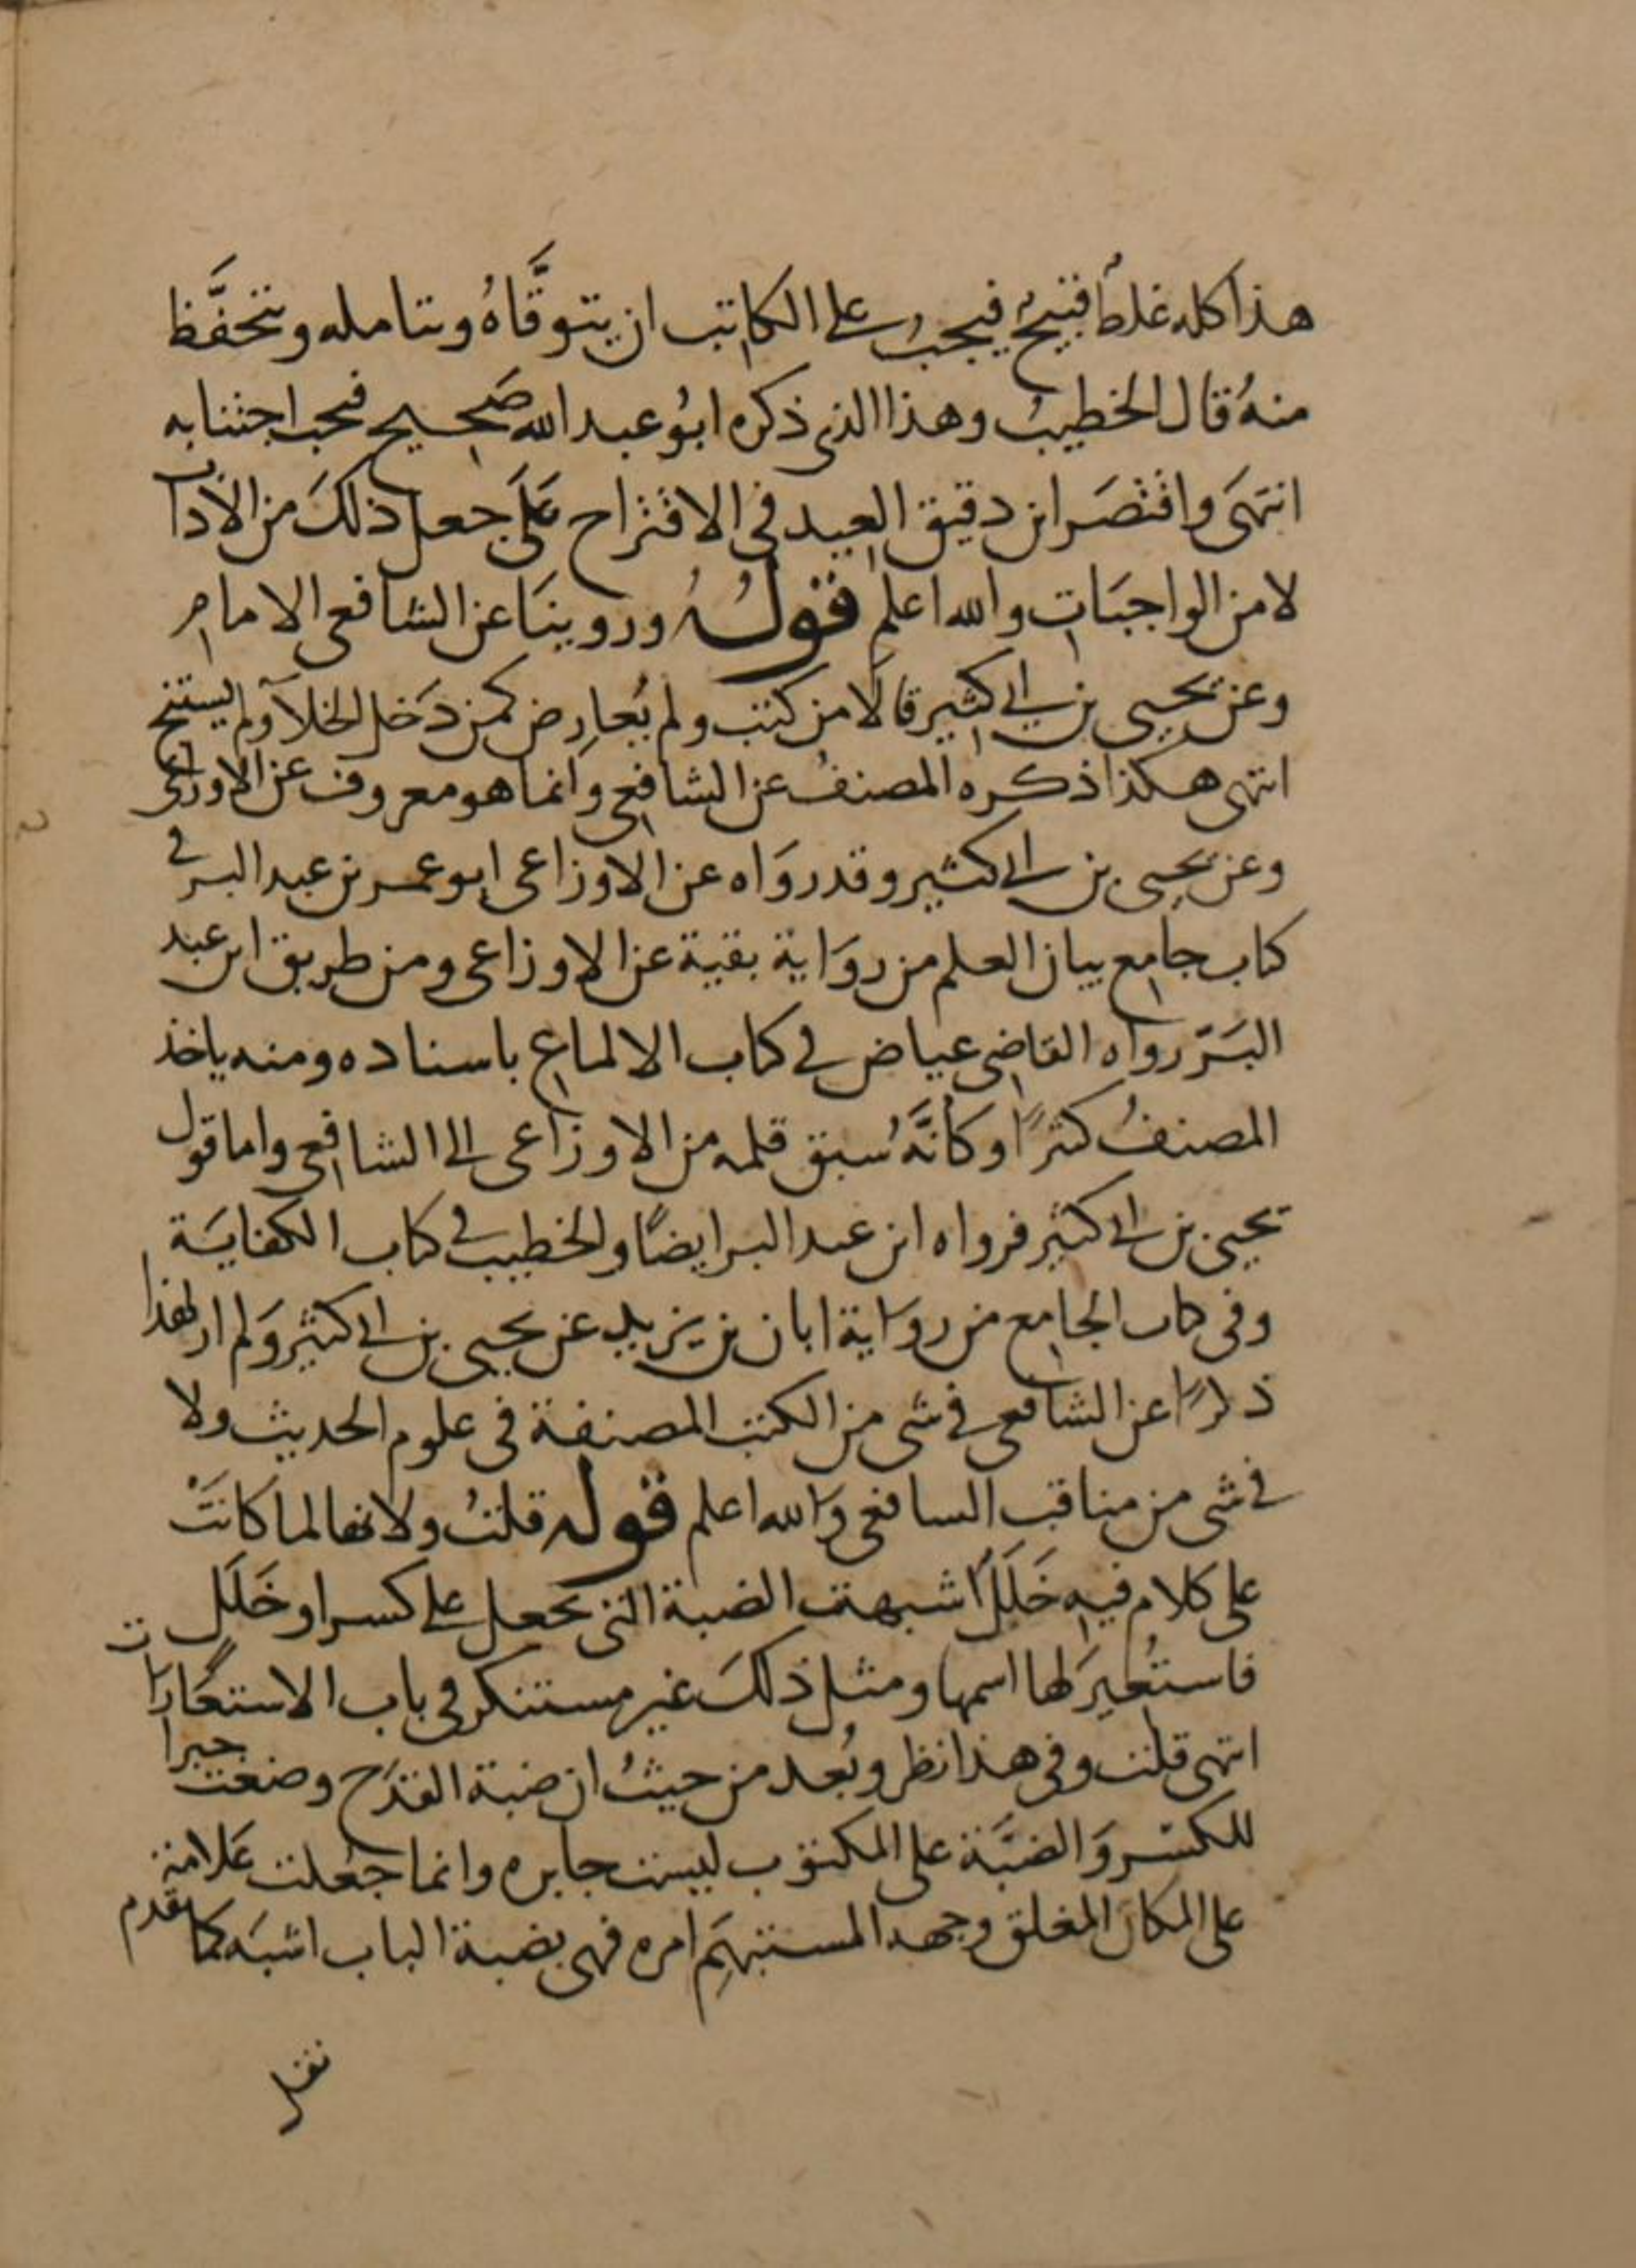 هذا كله غلط قبيح فيجب على الكاتب ان يتوقَّاهُ ويتامله ويتحفَّظ
منهُ قال الخطيبُ وهذا الذي ذكره ابُو عبد الله صَحيح فيجب اجتنابه
انتهَى واقتصَر ابن دقيق العيد في الاقتراح عَلَى جعل ذلكَ من الآداب
لا من الواجبَات والله اعلم قولهُ وروينَا عن الشافعي الامام
وعن يحيى بن ابي كثير قالَا من كتب ولم يُعارِض كمن دَخل الخلآ ولم يستنج
انتهى هكذا ذكره المصنفُ عن الشافعي وانما هو معروف عن الاوزاعي
وعن يحيى بن ابي كثير وقد روَاه عن الاوزاعي ابو عمر بن عبد البر في
كتاب جامع بيان العلم من روَاية بقية عن الاوزاعي ومن طريق ابن عبد
البَرّ رواه القاضي عياض في كتاب الالماع باسناده ومنه ياخذ
المصنفُ كثيرًا وكأنَّهُ سبق قلمه من الاوزاعي الى الشافعي واما قول
يحيى بن ابي كثير فرواه ابن عبد البر ايضًا والخطيب في كتاب الكفايَة
وفي كتاب الجامع من روَاية ابان بن يزيد عن يحيى بن ابي كثير وَلم ار لهذا
ذكرًا عن الشافعي في شي من الكتب المصنفة في علوم الحديث ولا
في شي من مناقب الشافعي والله اعلم قوله قلتُ ولانها لما كانَتْ
على كلام فيه خَلَلٌ اشبهت الضبة التي تجعل على كسر او خَلَل
فاستُعِيرَ لها اسمها ومثل ذلكَ غير مستنكر في باب الاستعَارات
انتهى قلت وفي هذا نظر وبُعد من حيثُ ان ضبة القدَح وضعت جبرا
للكسر وَالضبَّة على المكتوب ليست جابره وانما جعلت عَلامة
على المكان المغلق وجهه المستبهَم امره فهي بضبة الباب اشبَه كما تقدم
نقل